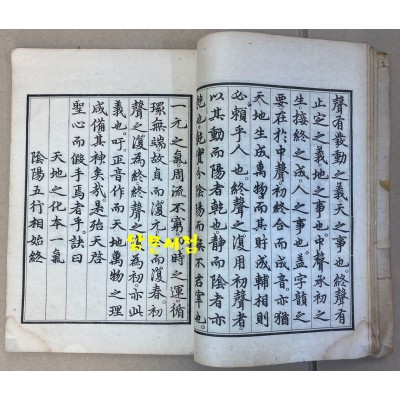 聲有發動之義。天之事也。終聲有
止定之義。地之事也。中聲承初之
生。接終之成。人之事也。盖字韻之
要。在於中聲。初終合而成音。亦猶
天地生成萬物。而其財成輔相則
必賴乎人也。終聲之復用初聲者。
以其動而陽者乾也。靜而陰者亦
乾也。乾實分陰陽而無不君宰也。
一元之氣。周流不窮。四時之運。循
環無端。故貞而復元。冬而復春。初
聲之復為終。終聲之復為初。亦此
義也。吁。正音作而天地萬物之理
咸備。其神矣哉。是殆天啓
聖心而假手焉者乎。訣曰
天地之化本一氣
陰陽五行相始終